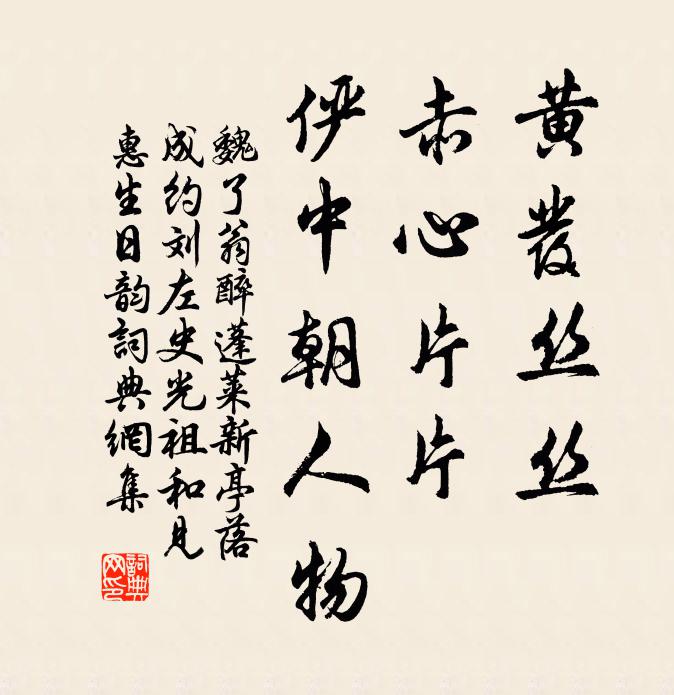 黄发丝丝
赤心片片
俨中朝人物
魏了翁醉蓬莱新亭落
成约刘左史光祖和见
惠生日韵詞典網集
詞典网印